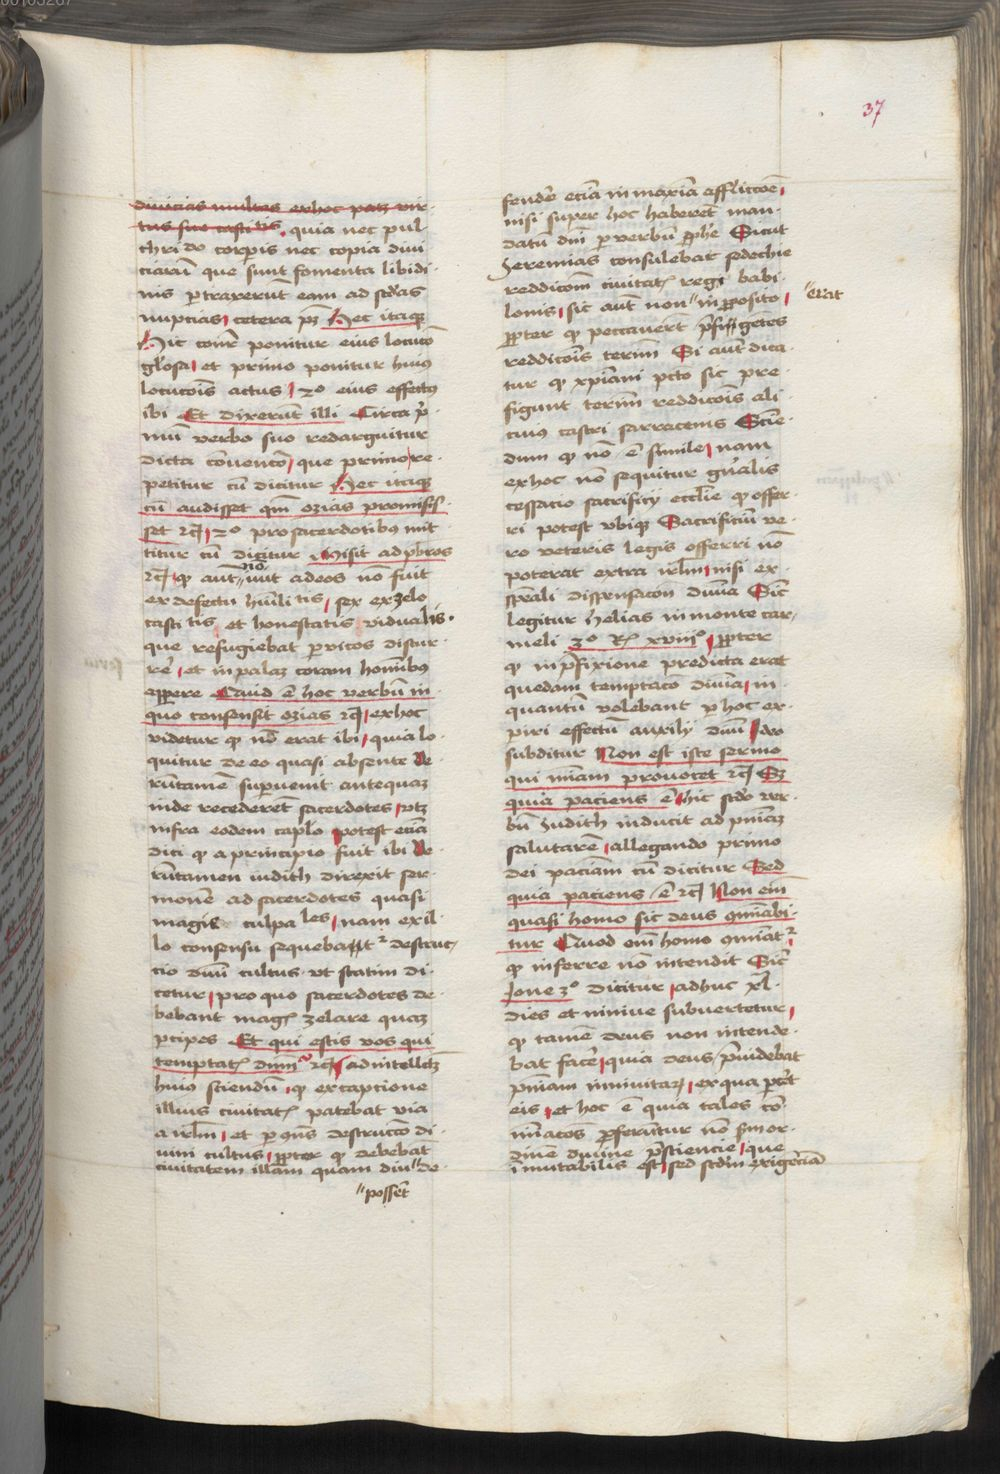 37
diuicias multas ex hoc patz vir-
tus sue casti tis. quia nec pul
chri do corpis nec copia diui
ciarum que sunt fomenta libidi-
nis ptraxerūt eam ad scd̄as
nupcias, cetera pz Hec itaqz
Hic conr̄ ponitur eius locuco
glosa, et primo ponitur huius
locucōis actus, 2o eius effectus
ibi Et dixerūt illi Circa p̄-
mū verbo suo redarguitur
dicta cōuencō, que primo re-
petitur cū dicitur Hec itaqz
cū audisset qm̄ ozias promisis-
set 2c, 2o pro sacerdotibus mit
titur cū dicitur Misit ad pbros
2c, qz aut "no" iuit ad eos nō fuit
ex defectu hūili tis, sex ex zelo
casti tis et honestatis vidualis.
que refugiebat p vicos discur
rē, et in palaz coram hominibus
appere Quid ē hoc verbū in
quo consensit ozias 2c, ex hoc
videtur qz nō erat ibi, quia lo-
quitur de eo quasi absente Ve
rūtamē supuenit antequaz
inde recederēt sacerdotes, vtz
infra eodem caplo potest etiā
dici qz a principio fuit ibi Ve
rūtamen iudith direxit ser-
monē ad sacerdotes quasi
magis culpa les, nam ex il-
lo consensu sequebatur destruc-
tio diuī cultus vt statim di-
cetur, pro quo sacerdotes de-
bebant mag zelare quaz
pcipes Et qui estis vos qui
temptatz dnm 2c, ad intellectz
huius sciendū, qz ex captione
illius ciuitatz patebat via
a irlm, et p 9ns destruccō di-
uini cultus, ppter qz debebāt
ciuitatem illam quam diu "de-
"possēt
fendē etiā in maxīa afflictōē,
nisi super hoc haberēt man-
datū dni p verbū pphē Sicut
Jeremias consulebat sedechie
reddicom ciuitatz regi babi-
lonis, sic aut non "in pposito,
"erat
ppter qz peccauerēt p̄figentes
reddicōis termm Si aut dica-
tur qz xp̄iani pcto sic pre-
figunt termm reddicōis ali
cuius castri sarracenis Scīe-
dum qz nō ē simile, nam
ex hoc nō sequitur gn̄alis
cessacio sacrificij ecclie qz offer-
ri potest vbiqz Sacrificiū ve-
ro veteris legis offerri nō
poterat extra irlm, nisi ex
spēali dispensacōn diuina Sic
legitur helias in monte car-
meli 3o R xviijo, ppter
qz in p̄fixione predicta erat
quedam temptacō diuina, in-
quantū volebant p hoc ex-
piri effectū auxilij diuī Ideo
subditur Non est iste sermo
qui miam prouocet 2c, Sz
quia paciens ē, hic scdo ver-
bū Judith inducit ad pniaz
salutarē, allegando primo
dei paciam cū dicitur Sed
quia paciens ē 2c, Non eim
quasi homo sic deus gminabi-
tur Quod em homo gmiat 2,
qz inferre nō intendit Sic
Jone 3o dicitur, adhuc xl.
dies et niniue subuertetur,
qz tamē deus non intende-
bat facē, quia deus p̄uidebat
p̄niam niniuitaz, ex qua pcet
eis, et hoc ē quia tales cō-
minacōs pferantur nō s̄m or-
dinē diuine p̄sciencie, que
imutabilis est, sed scdm exigeciā